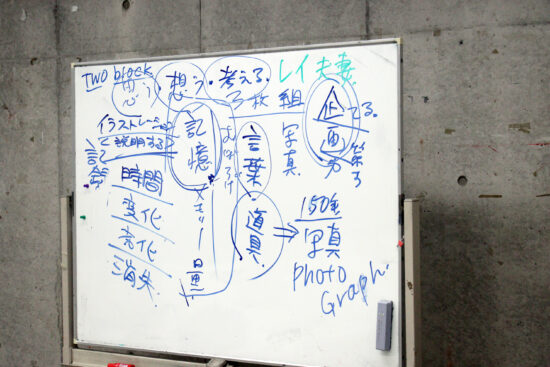 TWO block
思う・想う・考える。
レイ夫妻
3枚組写真
企画
イラストレーション
で説明する
記憶
言葉・道具
記録
時間
変化
消失
メモリー
量
150年
写真
Photo
Graph.